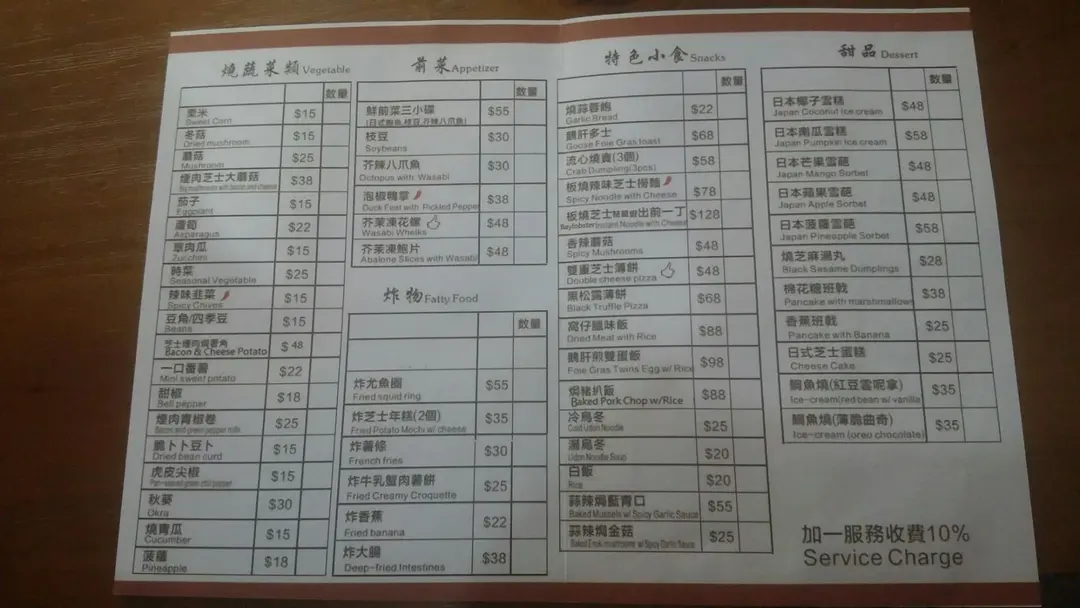 燒蔬菜類 Vegetable
數量
粟米 $15
Sweet Corn
冬菇 $15
Dried mushroom
蘑菇 $25
Mushroom
煙肉芝士大蘑菇 $38
Big mushroom with bacon and cheese
茄子 $15
Eggplant
蘆筍 $22
Asparagus
翠肉瓜 $15
Zucchini
時菜 $25
Seasonal Vegetable
辣味韭菜 $15
Spicy Chives
豆角/四季豆 $15
Beans
芝士煙肉焗薯角 $48
Bacon & Cheese Potato
一口番薯 $22
Mini sweet potato
甜椒 $18
Bell pepper
煙肉青椒卷 $25
Bacon and green pepper rolls
脆卜卜豆卜 $15
Dried bean curd
虎皮尖椒 $15
Pan-seared green chili pepper
秋葵 $30
Okra
燒青瓜 $15
Cucumber
菠蘿 $18
Pineapple
前菜 Appetizer
數量
鮮前菜三小碟 $55
(日式鮑魚,枝豆,芥辣八爪魚)
枝豆 $30
Soybeans
芥辣八爪魚 $30
Octopus with Wasabi
泡椒鴨掌 $38
Duck Feet with Pickled Pepper
芥茉凍花螺 $48
Wasabi Whelks
芥茉凍鮑片 $48
Abalone Slices with Wasabi
炸物 Fatty Food
數量
炸尤魚圈 $55
Fried squid ring
炸芝士年糕(2個) $35
Fried Potato Mochi w/ cheese
炸薯條 $30
French fries
炸牛乳蟹肉薯餅 $25
Fried Creamy Croquette
炸香蕉 $22
Fried banana
炸大腸 $38
Deep-fried Intestines
特色小食 Snacks
數量
燒蒜蓉飽 $22
Garlic Bread
鵝肝多士 $68
Goose Foie Gras toast
流心燒賣(3個) $58
Crab Dumpling(3pcs)
板燒辣味芝士撈麵 $78
Spicy Noodle with Cheese
板燒芝士龍蝦鉗出前一丁 $128
Baylobster Instant Noodle with Cheese
香辣蘑菇 $48
Spicy Mushrooms
雙重芝士薄餅 $48
Double cheese pizza
黑松露薄餅 $68
Black Truffle Pizza
窩仔臘味飯 $88
Dried Meat with Rice
鵝肝煎雙蛋飯 $98
Foie Gras Twins Egg w/ Rice
焗豬扒飯 $88
Baked Pork Chop w/Rice
冷烏冬 $25
Cold Udon Noodle
湯烏冬 $20
Udon Noodle Soup
白飯 $20
Rice
蒜辣焗藍青口 $55
Baked Mussels w/ Spicy Garlic Sauce
蒜辣焗金菇 $25
Baked Enoki mushrooms w/ Spicy Garlic Sauce
甜品 Dessert
數量
日本椰子雪糕 $48
Japan Coconut Ice cream
日本南瓜雪糕 $58
Japan Pumpkin Ice cream
日本芒果雪葩 $48
Japan Mango Sorbet
日本蘋果雪葩 $48
Japan Apple Sorbet
日本菠蘿雪葩 $58
Japan Pineapple Sorbet
燒芝麻湯丸 $28
Black Sesame Dumplings
棉花糖班戟 $38
Pancake with marshmallows
香蕉班戟 $25
Pancake with Banana
日式芝士蛋糕 $25
Cheese Cake
鯛魚燒(紅豆雲呢拿) $35
Ice-cream(red bean w/ vanilla
鯛魚燒(薄脆曲奇) $35
Ice-cream (oreo chocolate)
加一服務收費10%
Service Charge